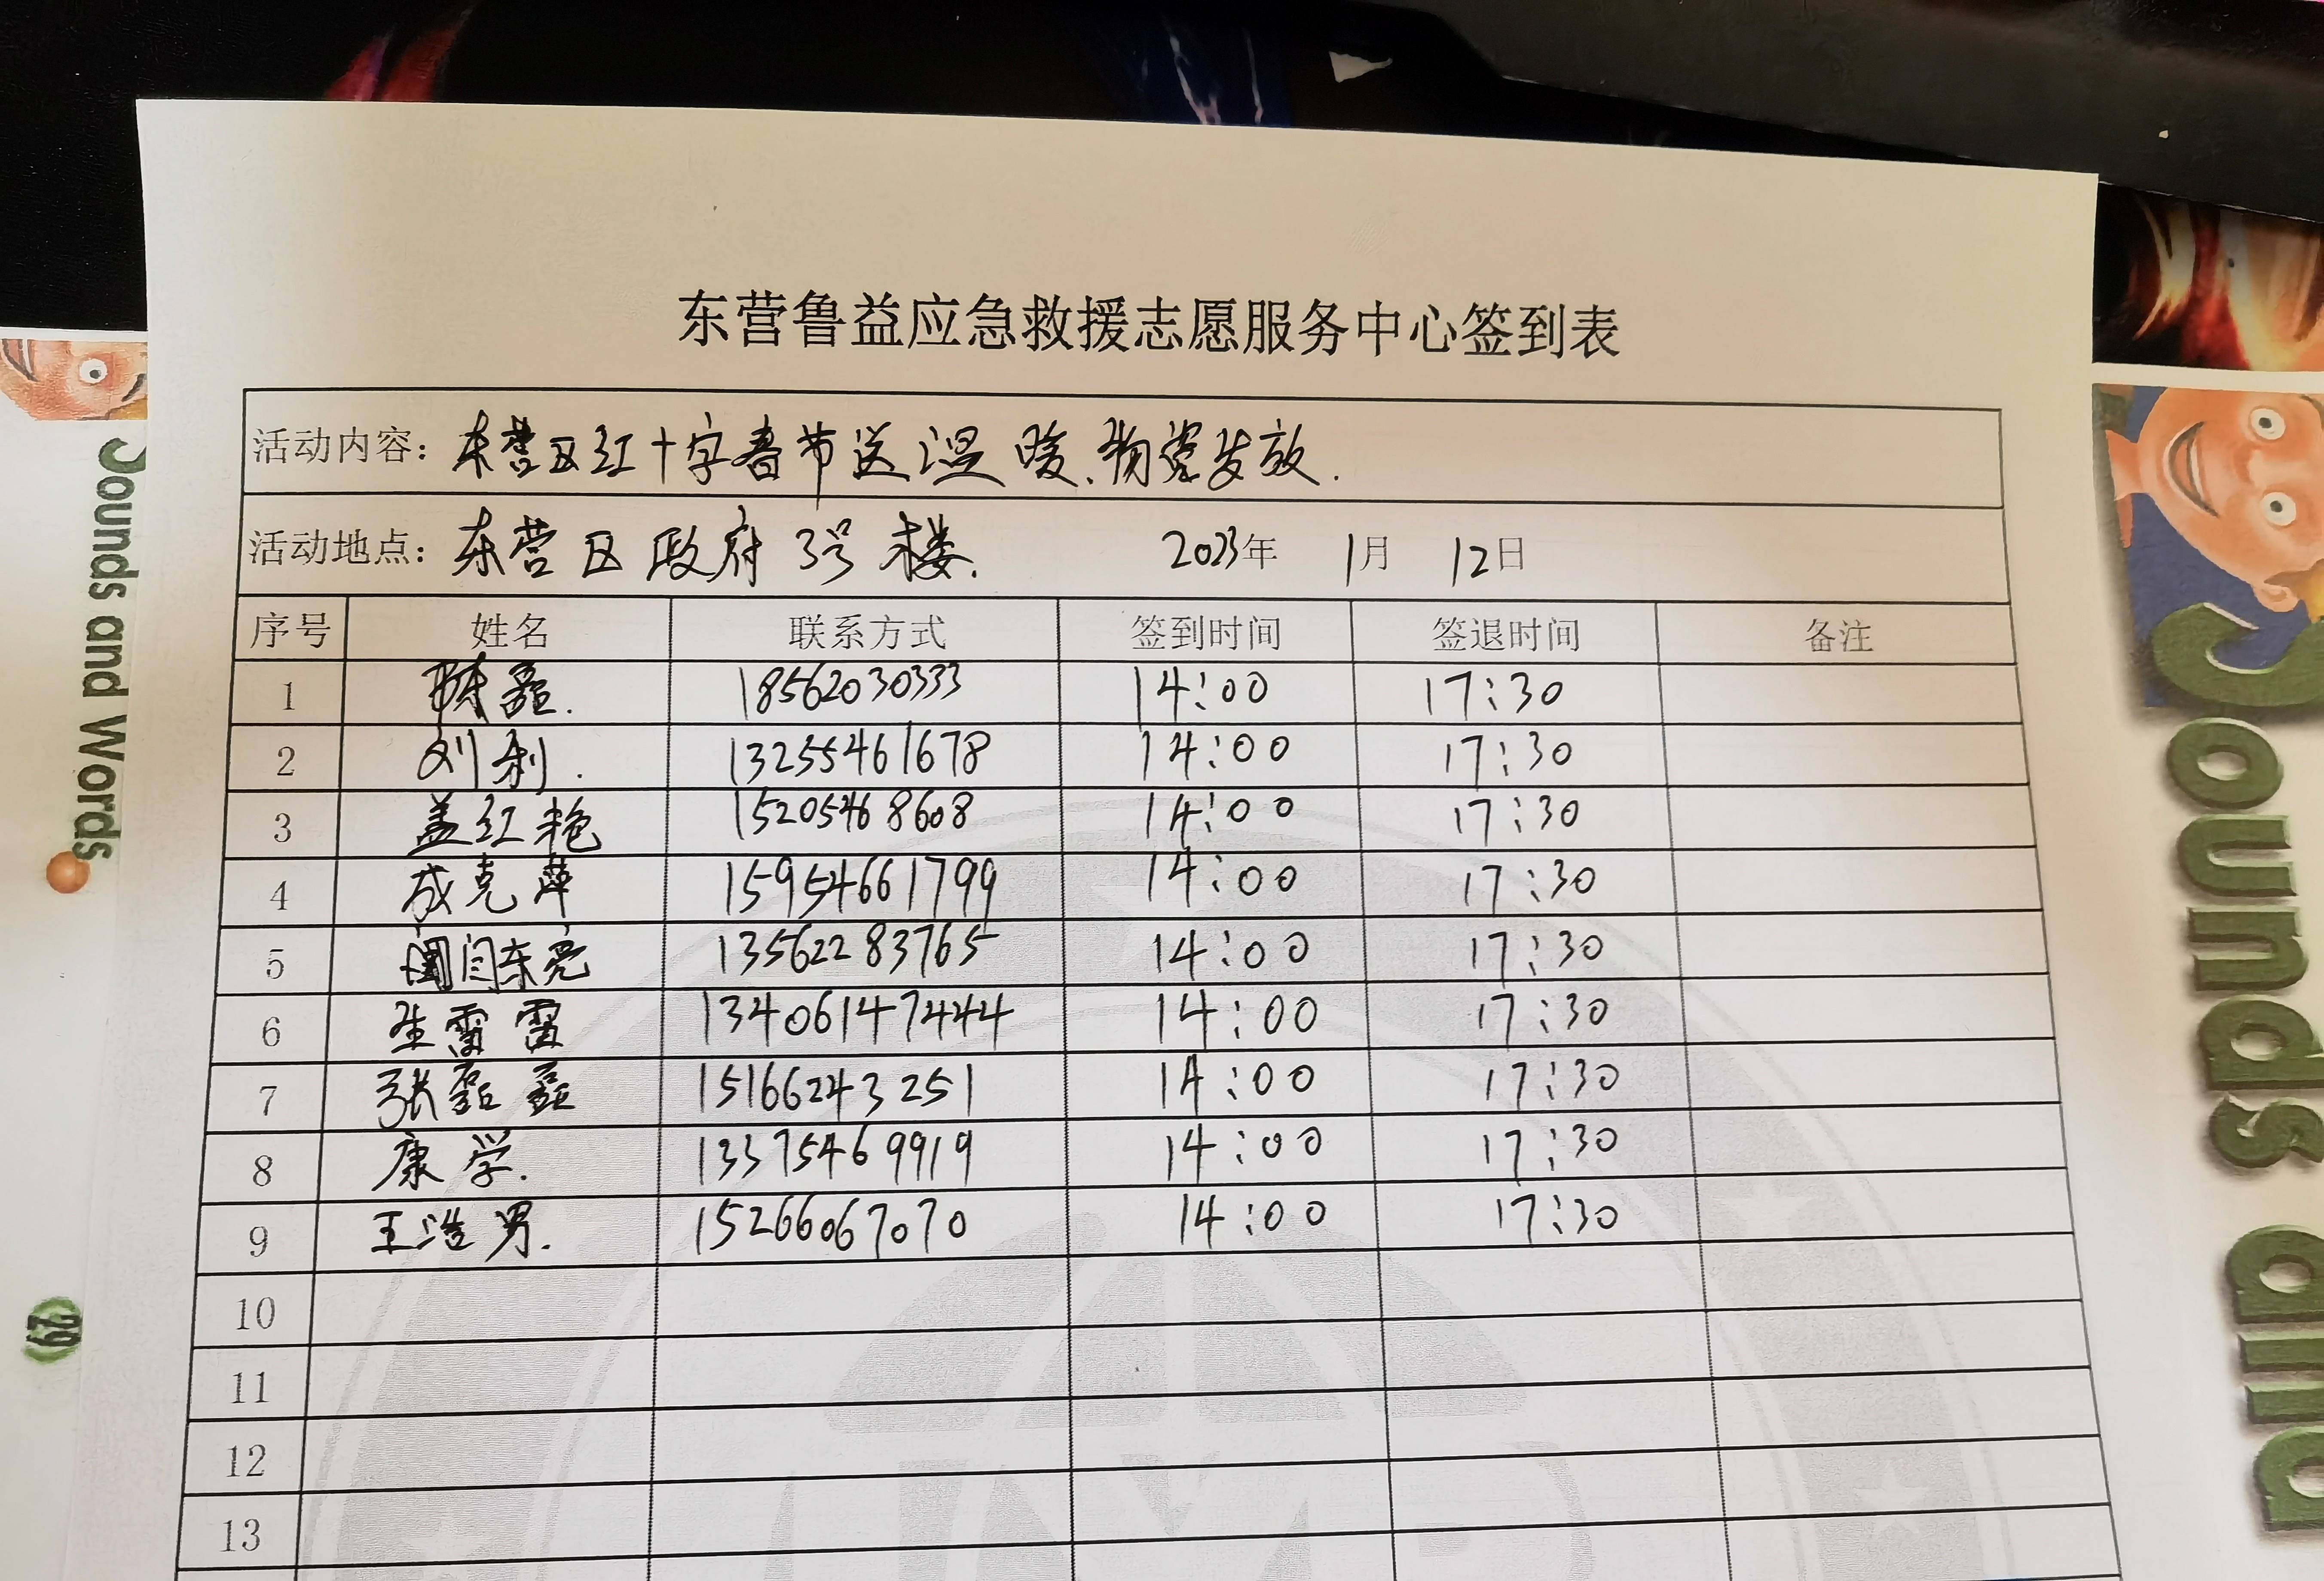 东营鲁益应急救援志愿服务中心签到表
活动内容：东营区红十字春节送温暖、物资发放.
活动地点：东营区政府3号楼. 2023年 1月 12日
序号 姓名 联系方式 签到时间 签退时间 备注
1 陈磊. 18562030333 14:00 17:30
2 刘利. 13255461678 14:00 17:30
3 盖红艳 15205468608 14:00 17:30
4 成克萍 15954661799 14:00 17:30
5 闫东亮 13562283765 14:00 17:30
6 生雷雷 13406147444 14:00 17:30
7 张磊磊 15166243251 14:00 17:30
8 康学. 13375469919 14:00 17:30
9 王浩男. 15266067070 14:00 17:30
10
11
12
13
Sounds and Words
29
Sounds and